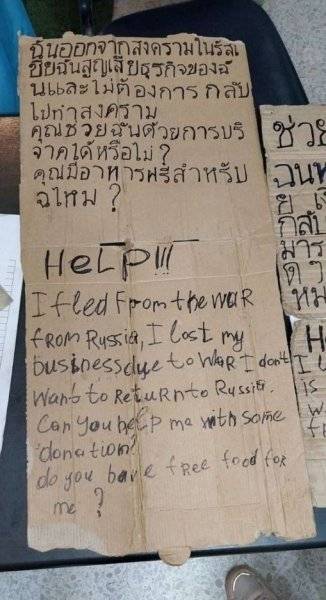 ฉันออกจากสงครามในรัสเ
ซียฉันสูญเสียธุรกิจของฉั
นและไม่ต้องการ กลับ
ไปทำสงคราม
คุณช่วยฉันด้วยการบริ
จาคได้หรือไม่ ?
คุณมีอาหารฟรีสำหรับ
ฉไหม ?
HeLP!!!
I fled From the waR
fRom Russia, I lost my
business due to waR I don't
want to RetuRn to Russia.
Can you help me with some
donation?
do you have fRee food foR
me ?
ช่วย